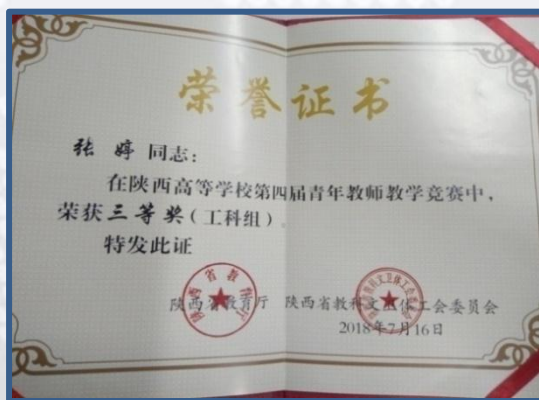 荣誉证书
张婷 同志:
在陕西高等学校第四届青年教师教学竞赛中,
荣获三等奖(工科组)。
特发此证
陕西省教育厅 陕西省教科文卫体工会委员会
2018年7月16日
陕西省教育厅